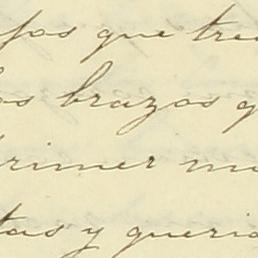 jos que tre
os brazos q
rimer m
tas y queri